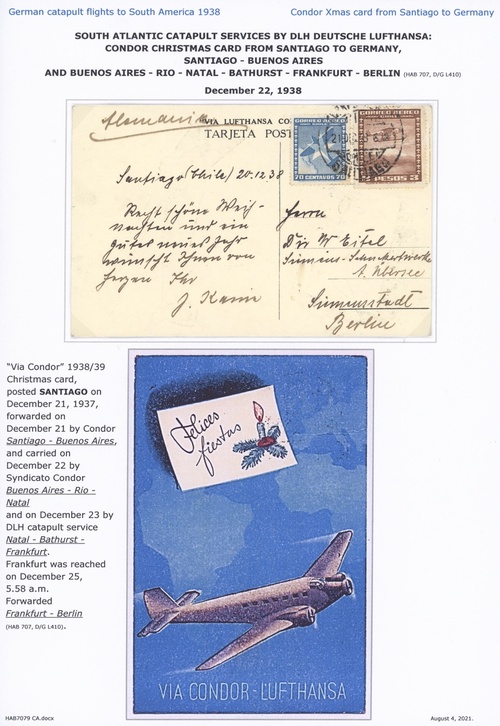 German catapult flights to South America 1938
Condor Xmas card from Santiago to Germany
SOUTH ATLANTIC CATAPULT SERVICES BY DLH DEUTSCHE LUFTHANSA:
CONDOR CHRISTMAS CARD FROM SANTIAGO TO GERMANY,
SANTIAGO - BUENOS AIRES
AND BUENOS AIRES - RIO - NATAL - BATHURST - FRANKFURT - BERLIN (HAB 707, D/G L410)
December 22, 1938
Alemania
VIA LUFTHANSA CO
TARJETA POST
CORREO AEREO
70 CENTAVOS 70
CORREO AEREO
2 PESOS 2
Santiago (Chile) 20.12.38
Recht schöne Weih-
nachten und ein
gutes neues Jahr
wünscht Ihnen von
Herzen Ihr
J.
Herrn
Dir W Eitel
Siemens-Schuckertwerke
A. Übersee
Siemensstadt
Berlin
"Via Condor" 1938/39
Christmas card,
posted SANTIAGO on
December 21, 1937,
forwarded on
December 21 by Condor
Santiago - Buenos Aires,
and carried on
December 22 by
Syndicato Condor
Buenos Aires - Rio -
Natal
and on December 23 by
DLH catapult service
Natal - Bathurst -
Frankfurt.
Frankfurt was reached
on December 25,
5.58 a.m.
Forwarded
Frankfurt - Berlin
(HAB 707, D/G L410).
Felices
fiestas
VIA CONDOR-LUFTHANSA
HAB7079 CA.docx
August 4, 2021.